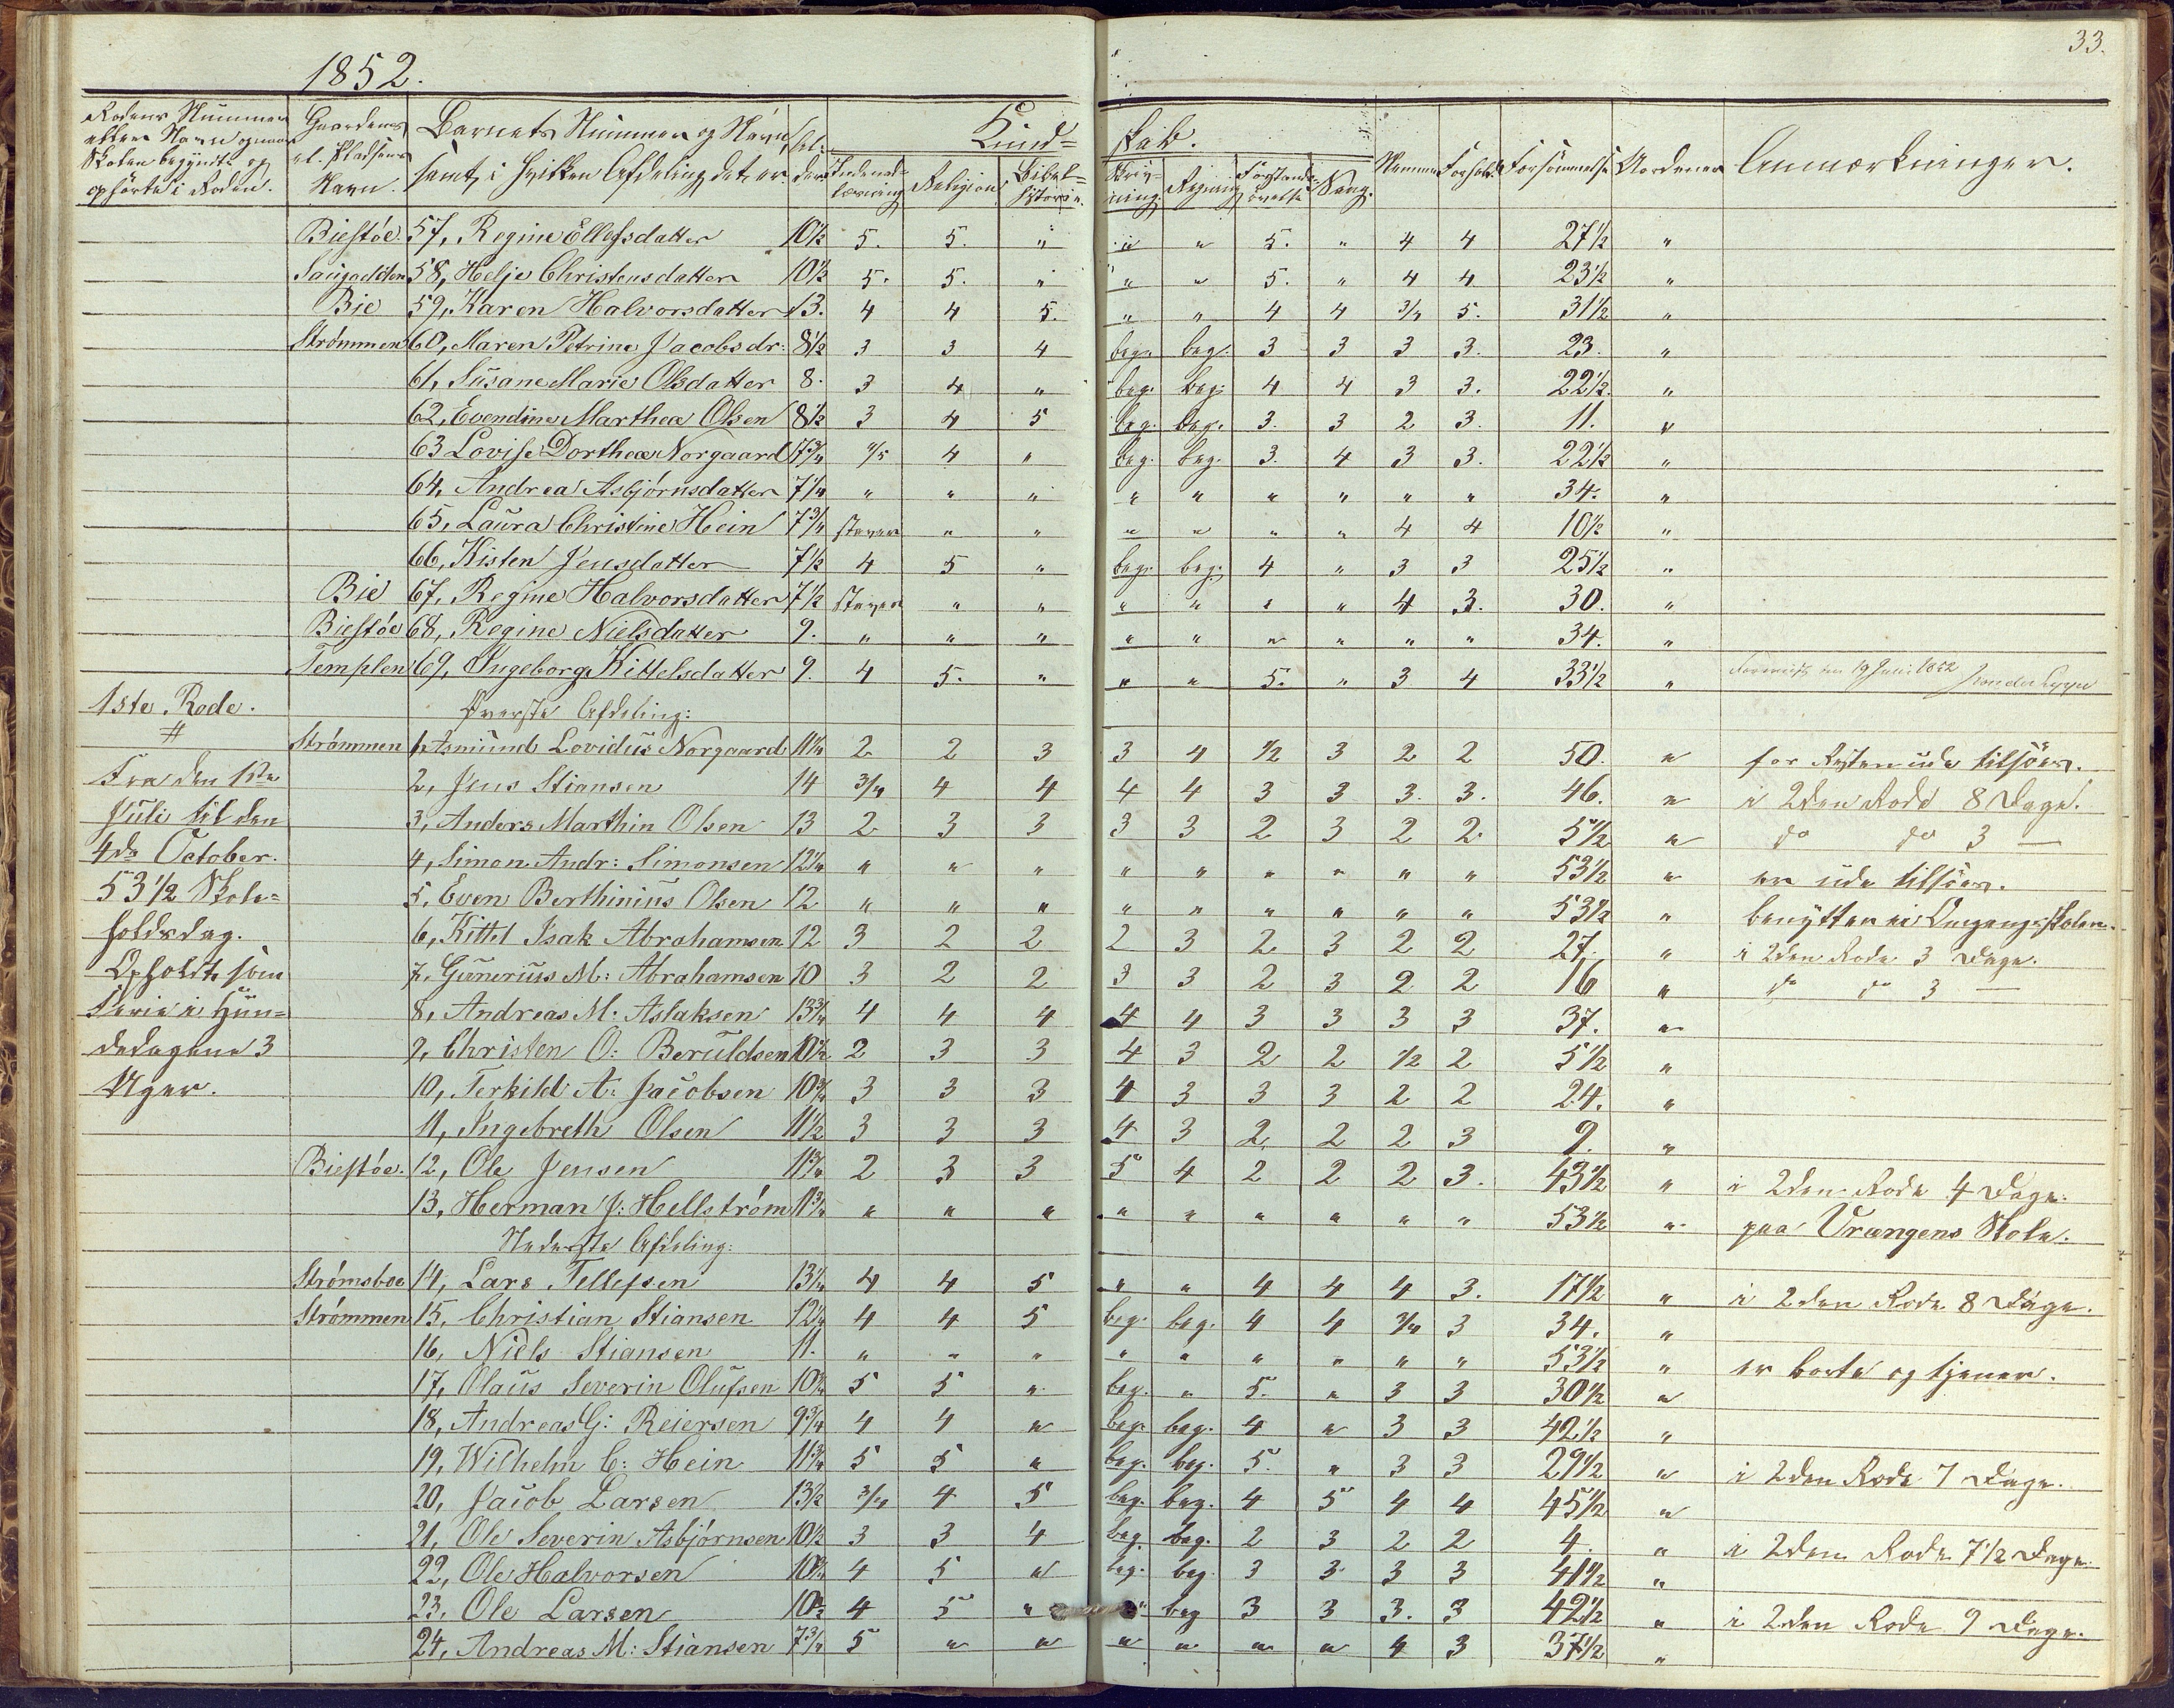 33.
1852.
Rodens Nummer eller Navn og naar Skolen begyndte og ophørte i Roden. | Gaardens el. Pladsens Navn. | Barnets Nummer og Navn, samt, i hvilken Afdeling det er. | Al- der | Kund- skab. Indenad- læsning | Religion | Bibel- historie. | Skriv- ning. | Regning | Forstands- øvelse | Sang. | Nemme | Forhold | Forsømmelse | Anmærkninger.
Biestøe. 57, Regine Ellefsdatter 10½ 5. 5. " " " 5. " 4 4 27½ "
58, Helje Christensdatter 10½ 5. 5. " " " 5. " 4 4 23½ "
Bie 59, Karen Halvorsdatter 13. 4 4 5. " " 4 4 3/4 5. 31½ "
Strømmen 60, Maren Petrine Jacobsdr: 8½ 3 3 4 beg. beg. 3 3 3 3. 23. "
61, Susane Marie Olsdatter 8. 3 4 " beg. beg. 4 4 3 3. 22½ "
62, Evendine Marthea Olsen 8½ 3 4 5 beg. beg. 3. 3 2 3. 11. "
63 Lovise Dorthea Norgaard 7¾ 4/5 4 " beg. beg. 3. 4 3 3. 22½ "
64, Andrea Asbjørnsdatter 7¼ " " " " " " " " " 34. "
65, Laura Christine Hein 7¾ staver " " " " " " 4 4 10½ "
66, Kisten Jensdatter 7½ 4 5 " beg. beg. 4 " 3 3 25½ "
Bie 67, Regine Halvorsdatter 7½ staver " " " " " " 4 3. 30. "
Biestøe 68, Regine Nielsdatter 9. " " " " " " " " " 34. "
Templen 69, Ingeborg Kittelsdatter 9. 4 5. " " " 5. " 3 4 33½ " 19 Juni 1852
1ste Rode. Øverste Afdeling:
# Strømmen 1, Asmund Lovidius Norgaard 11¼ 2 2 3 3 4 ½ 3 2 2 50. " for Resten ude tilsøes.
Fra den 1ste 2, Jens Stiansen 14 3/4 4 4 4 4 3 3 3. 3. 46. " i 2den Rode 8 Dage.
Juli til den 3, Anders Marthin Olsen 13 2 3 3 3 3 2 3 2 2. 5½ " do do 3 —
4de October. 4, Simon Andr: Simonsen 12¼ " " " " " " " " " 53½ " er ude tilsøes.
53½ Skole- 5, Even Berthinius Olsen 12 " " " " " " " " " 53½ " benytter ei Omgangsskolen.
holdsdag. 6, Kittel Isak Abrahamsen 12 3 2 2 2 3 2 3 2 2 27. " i 2den Rode 3 Dage.
Opholdt som 7, Gunerius M: Abrahamsen 10 3 2 2 3 3 2 3 2 2 16 " do do 3 —
Ferie i Hun- 8, Andreas M. Aslaksen 13¾ 4 4 4 4 4 3 3 3 3 37. "
dedagene 3 9, Christen O: Beruldsen 10½ 2 3 3 4 3 2 2 ½ 2 5½ "
Uger. 10, Terkild A: Jacobsen 10¾ 3 3 3 4 3 3 3 2 2 24. "
11, Ingebreth Olsen 11½ 3 3 3 4 3 2 2 2 3 9. "
Biestøe. 12, Ole Jensen 11¾ 2 3 3 5 4 2 2 2 3. 43½ " i 2den Rode 4 Dage.
13, Herman J: Hellstrøm 11¾ " " " " " " " " " 53½ " paa Vrængens Skole.
Nederste Afdeling:
Strømsboe 14, Lars Tellefsen 13¼ 4 4 5 " " 4 4 4 3. 17½ " i 2den Rode 8 Dage.
Strømmen 15, Christian Stiansen 12¼ 4 4 5 beg. beg. 4 4 3/4 3 34. "
16, Niels Stiansen 11. " " " " " " " " " 53½ " er borte og tjener.
17, Olaus Severin Olufsen 10¾ 5 5 " beg. " 5. " 3 3 30½ "
18, Andreas G: Reiersen 9¾ 4 4 " beg. beg. 4 " 3 3 42½ "
19, Wilhelm C: Hein 11¾ 5 5 " beg. beg. 5. " 3 3 29½ " i 2den Rode 7 Dage.
20, Jacob Larsen 13½ 3/4 4 5 beg. beg. 4 5 4 4 45½ "
21, Ole Severin Asbjørnsen 10½ 3 3 4 beg. beg. 2 3 2 2 4. " i 2den Rode 7½ Dage.
22, Ole Halvorsen 10¾ 4 5 " beg. beg. 3 3 3 3 41½ "
23. Ole Larsen 10½ 4 5 " " beg 3 3 3. 3 42½ " i 2den Rode 9 Dage.
24, Andreas M: Stiansen 7¾ 5 " " " " " " 4 3 37½ "